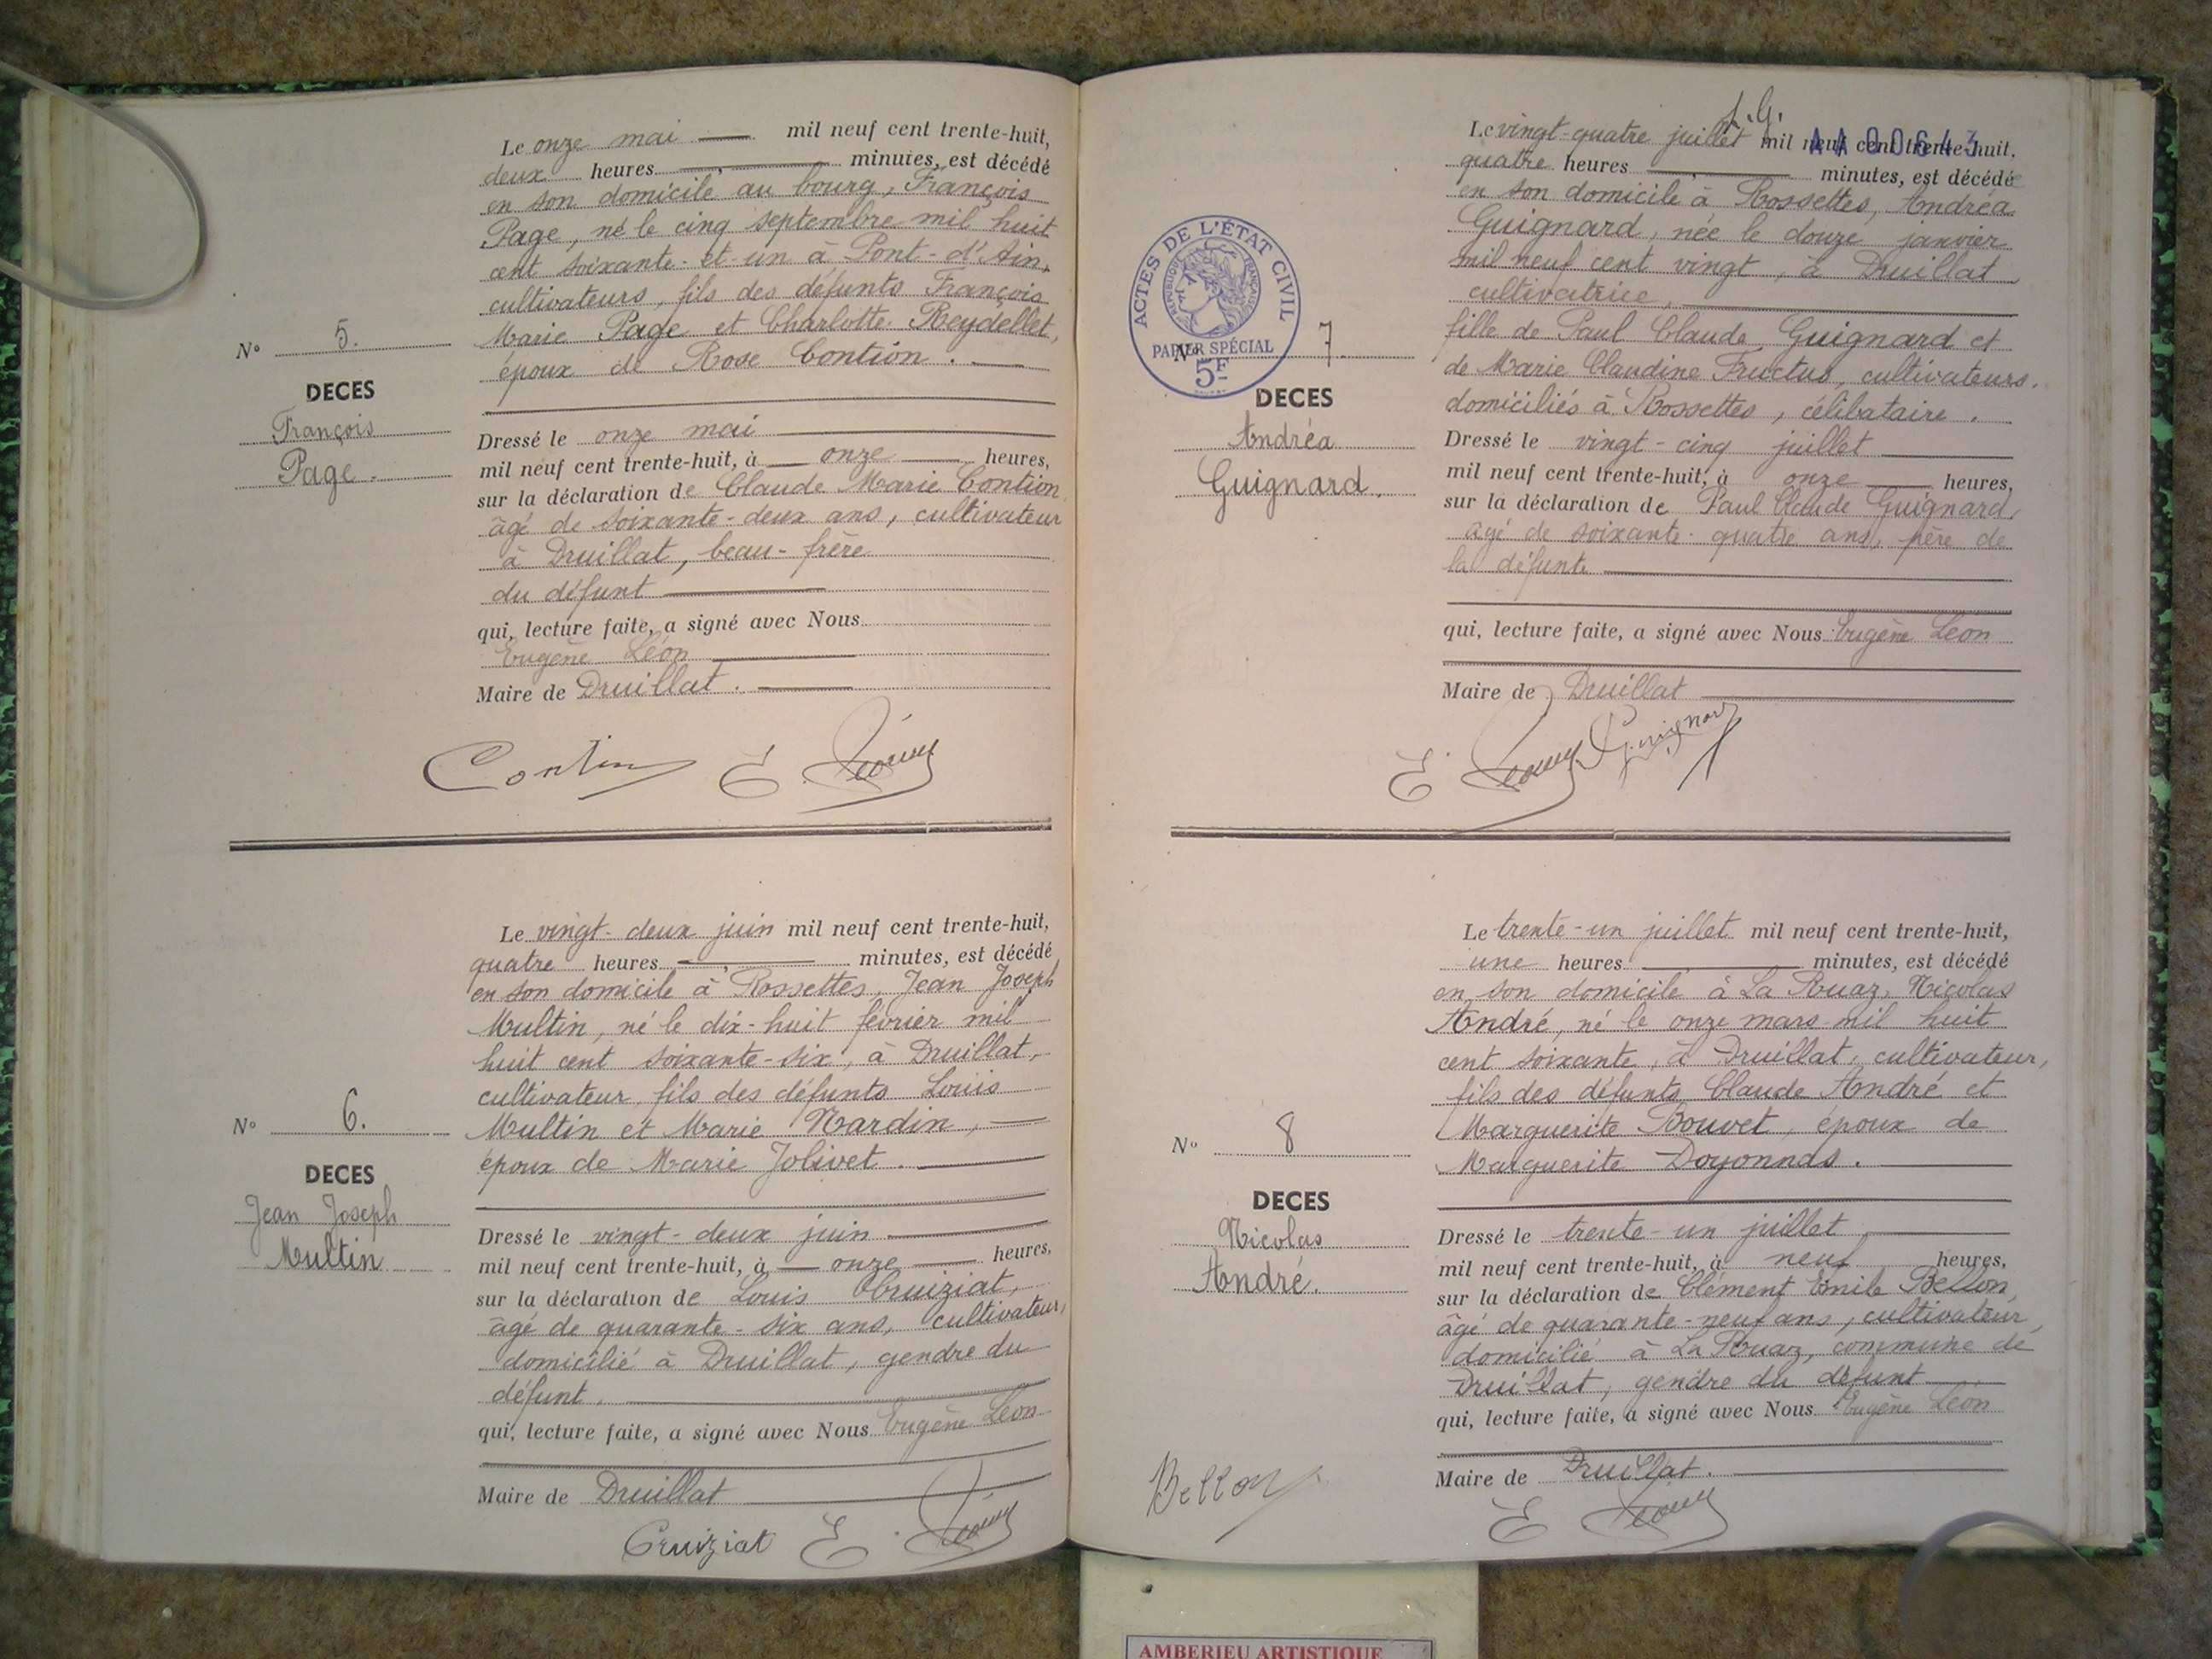 Le onze mai mil neuf cent trente-huit,
deux heures minutes, est décédé
en son domicile au bourg, François
Page, né le cinq septembre mil huit
cent soixante-et-un à Pont-d'Ain,
cultivateurs, fils des défunts François
Marie Page et Charlotte Reydellet,
époux de Rose Contion.
N° 5.
DECES
François
Page.
Dressé le onze mai
mil neuf cent trente-huit, à onze heures,
sur la déclaration de Claude Marie Contion
âgé de soixante-deux ans, cultivateur
à Druillat, beau-frère
du défunt
qui, lecture faite, a signé avec Nous
Eugène Léon
Maire de Druillat.
Contin E.
Le vingt-deux juin mil neuf cent trente-huit,
quatre heures minutes, est décédé
en son domicile à Rossettes, Jean Joseph
Multin, né le dix-huit février mil
huit cent soixante-six, à Druillat,
cultivateur, fils des défunts Louis
Multin et Marie Nardin,
époux de Marie Jolivet.
N° 6.
DECES
Jean Joseph
Multin
Dressé le vingt-deux juin
mil neuf cent trente-huit, à onze heures,
sur la déclaration de Louis Cruiziat,
âgé de quarante-six ans, cultivateur,
domicilié à Druillat, gendre du
défunt,
qui, lecture faite, a signé avec Nous Eugène Léon
Maire de Druillat
Cruiziat E.
AA00643
Le vingt-quatre juillet mil neuf cent trente-huit,
quatre heures minutes, est décédée
en son domicile à Rossettes, Andréa
Guignard, née le douze janvier
mil neuf cent vingt, à Druillat
cultivatrice,
fille de Paul Claude Guignard et
de Marie Claudine Fructus, cultivateurs,
domiciliés à Rossettes, célibataire.
ACTES DE L'ÉTAT CIVIL
RÉPUBLIQUE FRANÇAISE
PAPIER SPÉCIAL
5F
N° 7.
DECES
Andréa
Guignard.
Dressé le vingt-cinq juillet
mil neuf cent trente-huit, à onze heures,
sur la déclaration de Paul Claude Guignard,
âgé de soixante-quatre ans, père de
la défunte
qui, lecture faite, a signé avec Nous Eugène Léon
Maire de Druillat
E. Guignard
Le trente-un juillet mil neuf cent trente-huit,
une heures minutes, est décédé
en son domicile à La Ruaz, Nicolas
André, né le onze mars mil huit
cent soixante, à Druillat, cultivateur,
fils des défunts Claude André et
Marguerite Bouvet, époux de
Marguerite Doyonnas.
N° 8
DECES
Nicolas
André.
Dressé le trente-un juillet
mil neuf cent trente-huit, à neuf heures,
sur la déclaration de Clément Emile Bellon,
âgé de quarante-neuf ans, cultivateur,
domicilié à La Ruaz, commune de
Druillat, gendre du défunt
qui, lecture faite, a signé avec Nous Eugène Léon
Maire de Druillat.
Bellon E.
AMBERIEU ARTISTIQUE